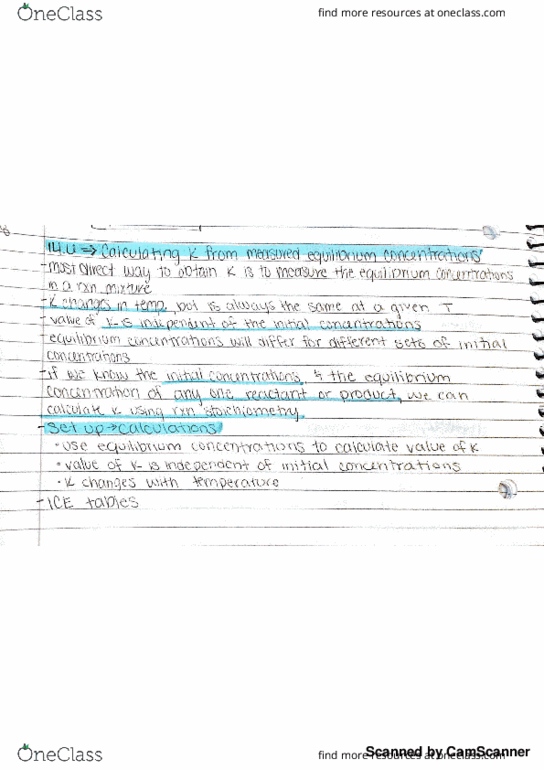 OneClass
find more resources at oneclass.com
14.6 => Calculating K from measured equilibrium concentrations
-most direct way to obtain K is to measure the equilibrium concentrations
in a rxn mixture
-K changes in temp, but is always the same at a given T
-value of K is independent of the initial concentrations
-equilibrium concentrations will differ for different sets of initial
concentrations
-if we know the initial concentrations, & the equilibrium
concentration of any one reactant or product, we can
calculate K using rxn stoichiometry.
-Set up→calculations
•use equilibrium concentrations to calculate value of K
•value of K is independent of initial concentrations
•K changes with temperature
-ICE tables
OneClass
find more resources at oneclass.com
Scanned by CamScanner